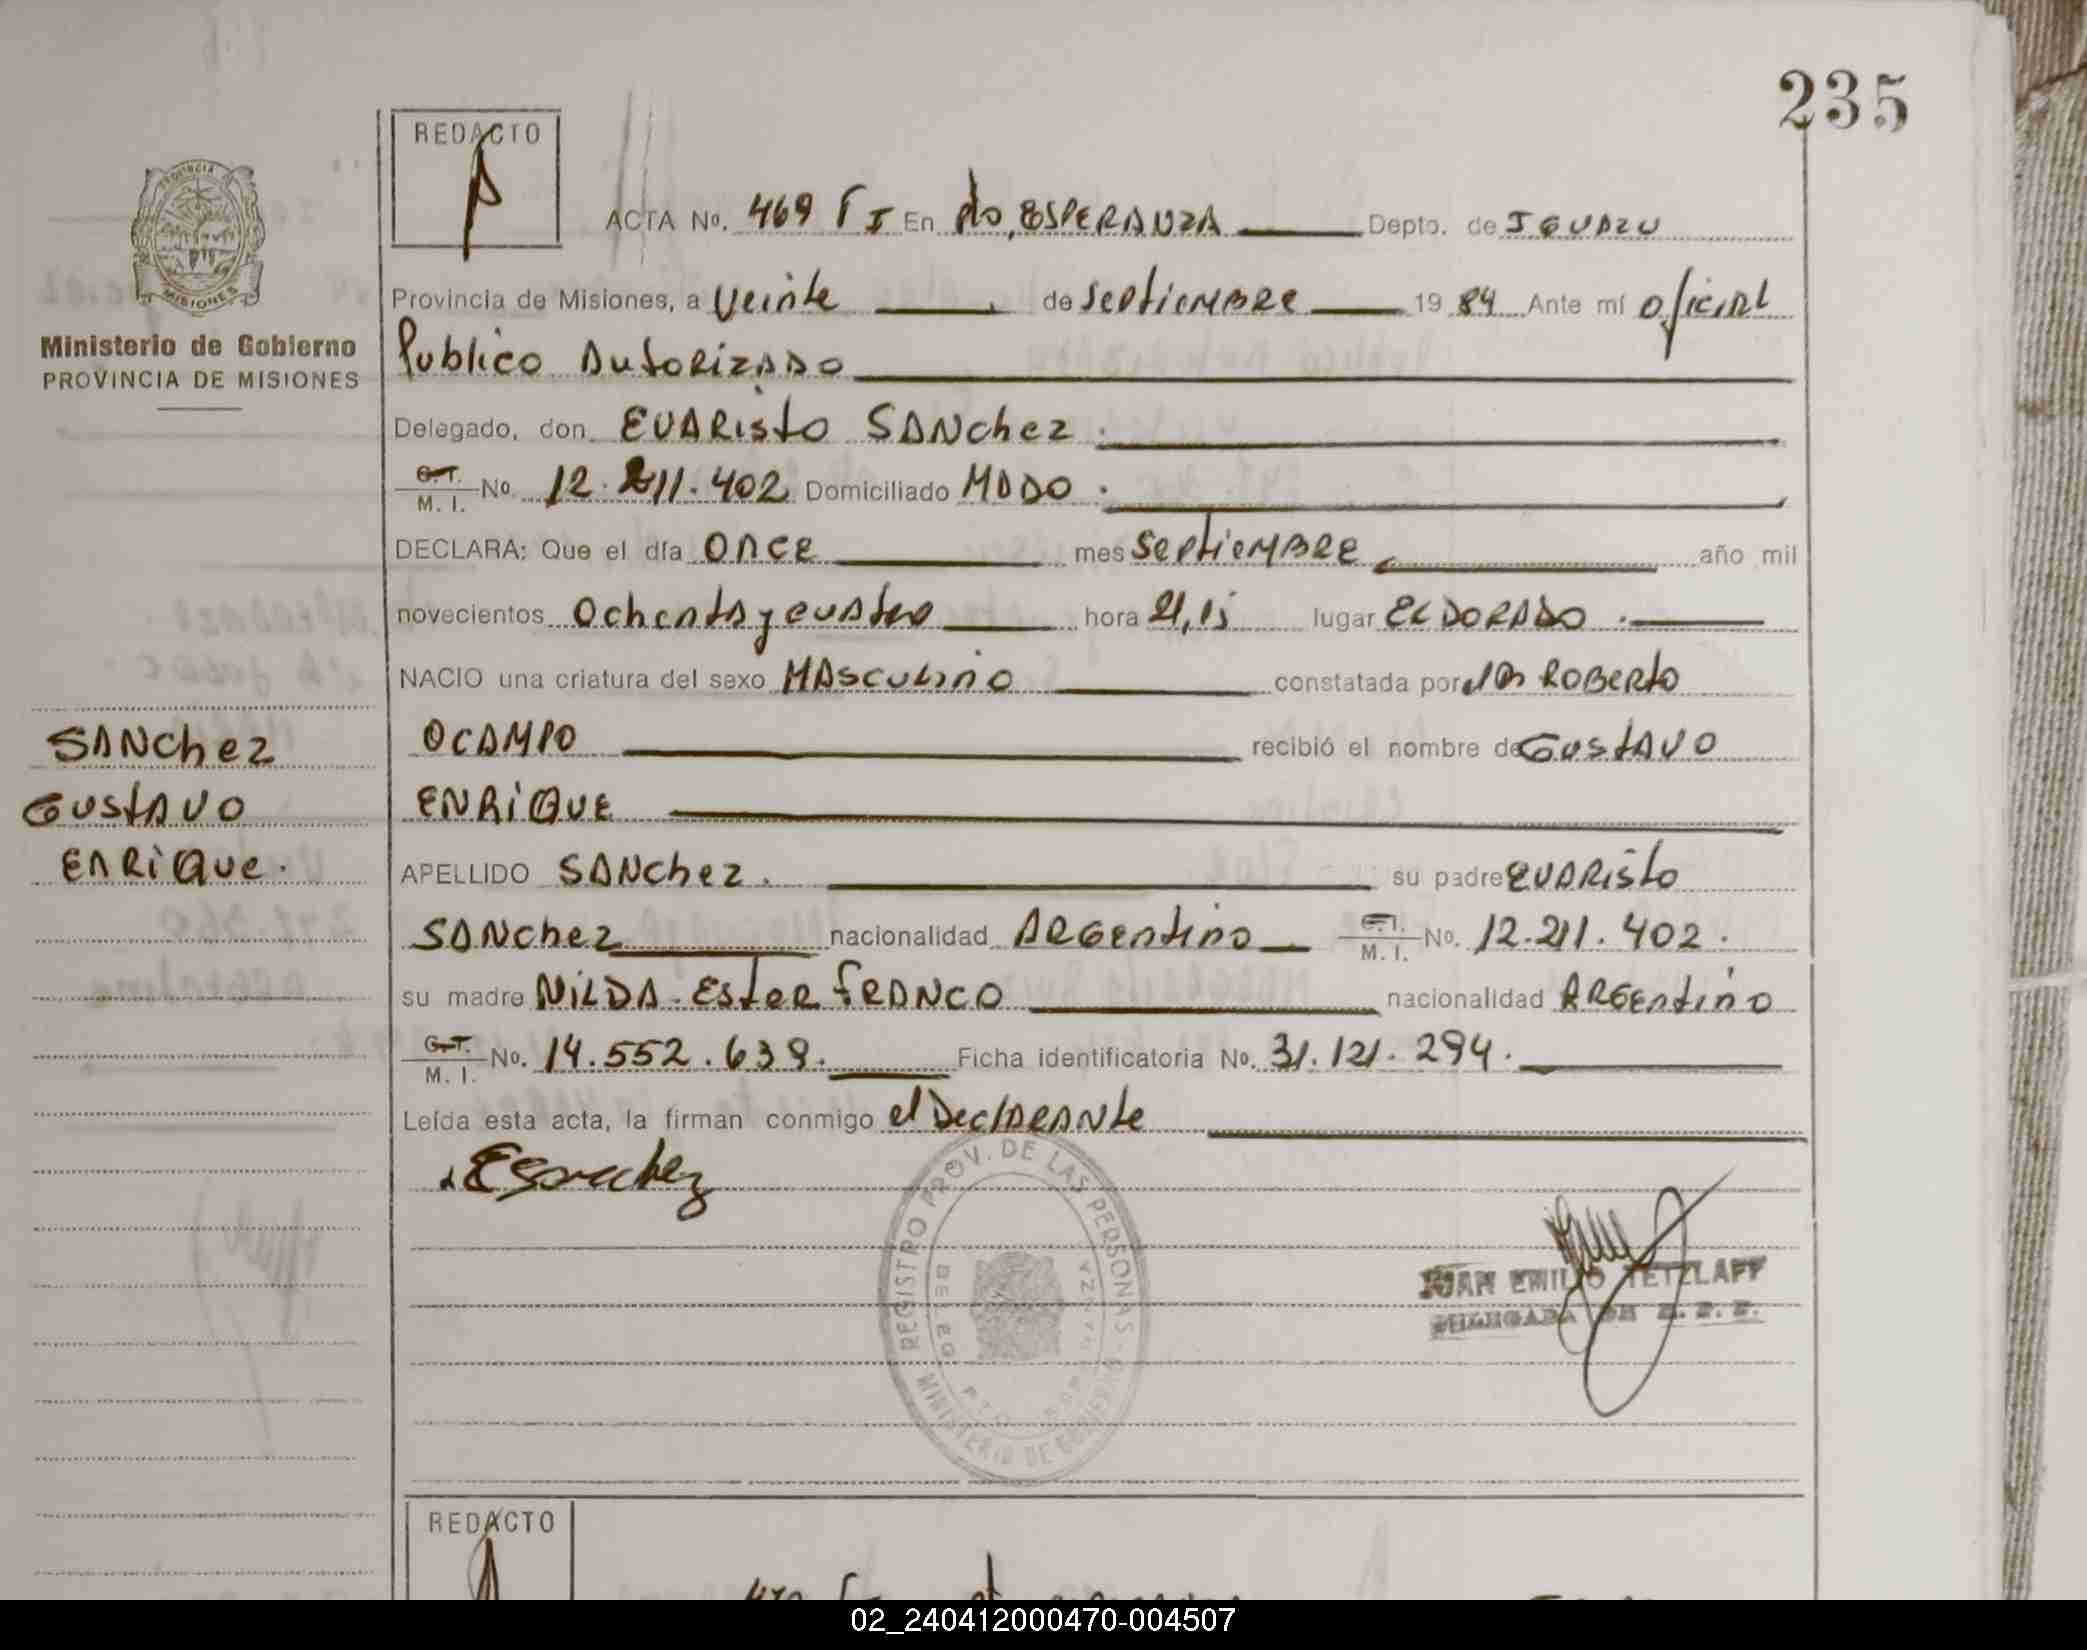 235
REDACTO
ACTA No. 469 T I En Pto, ESPERANZA Depto. de IGUAZU
Provincia de Misiones, a Veinte de Septiembre 19 84 Ante mí Oficial
Publico Autorizado
Ministerio de Gobierno
PROVINCIA DE MISIONES
Delegado, don EVARISTO SANCHEZ.
C.I. M. I. No. 12.211.402 Domiciliado MADO.
DECLARA: Que el día ONCE mes SEPTIEMBRE año mil
novecientos Ochenta y cuatro hora 21,15 lugar ELDORADO.
NACIO una criatura del sexo MASCULINO constatada por ROBERTO
OCAMPO recibió el nombre de GUSTAVO
ENRIQUE
SANCHEZ
GUSTAVO
ENRIQUE.
APELLIDO SANCHEZ. su padre EVARISTO
SANCHEZ nacionalidad ARGENTINO C.I. M. I. No. 12.211.402.
su madre NILDA ESTER FRANCO nacionalidad ARGENTINO
C.I. M. I. No. 14.552.639. Ficha identificatoria No. 31.121.294.
Leída esta acta, la firman conmigo el Declarante
ESanchez
REGISTRO PROV. DE LAS PERSONAS
MINISTERIO DE GOBIERNO
DELEG
PTO ESPERANZA
MISIONES
JUAN EMILIO TETZLAFF
REDACTO
470 T
02_240412000470-004507